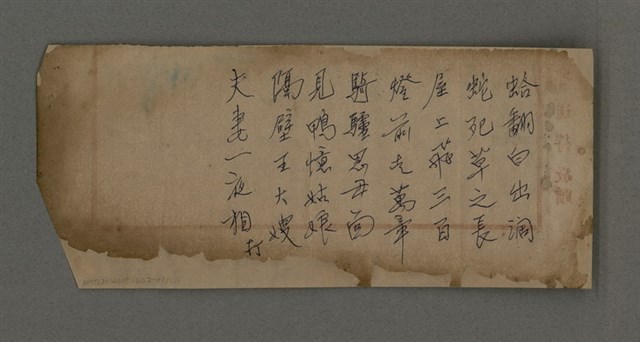 蛤翻白出涸
蛇死草之長
屋上飛三百
燈前走萬章
騎驢思母面
見鴨憶姑娘
隔壁王大嫂
夫妻一夜相打